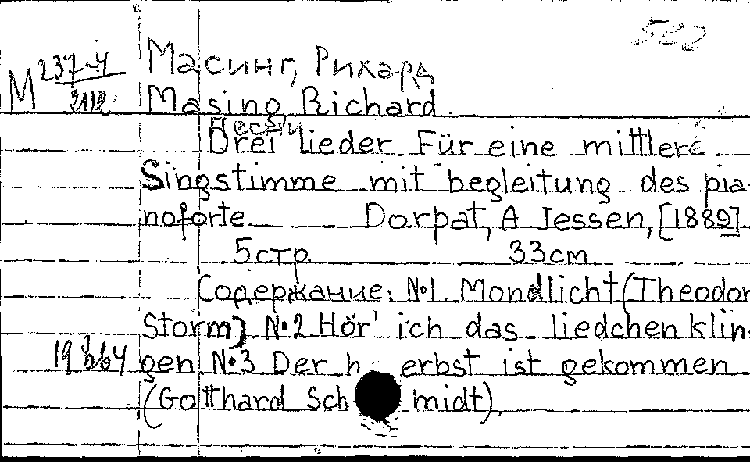 502
М 237-4 Масинг, Рихард
3112 Masing Richard
Песни
Drei lieder Für eine mittlere
Singstimme mit begleitung des pia-
noforte Dorpat, A Jessen, [1889]
5стр 33см
Содержание: №1 Mondlicht (Theodor
Storm) №2 Hör' ich das liedchen klin-
gen №3 Der herbst ist gekommen
(Gotthard Schmidt).